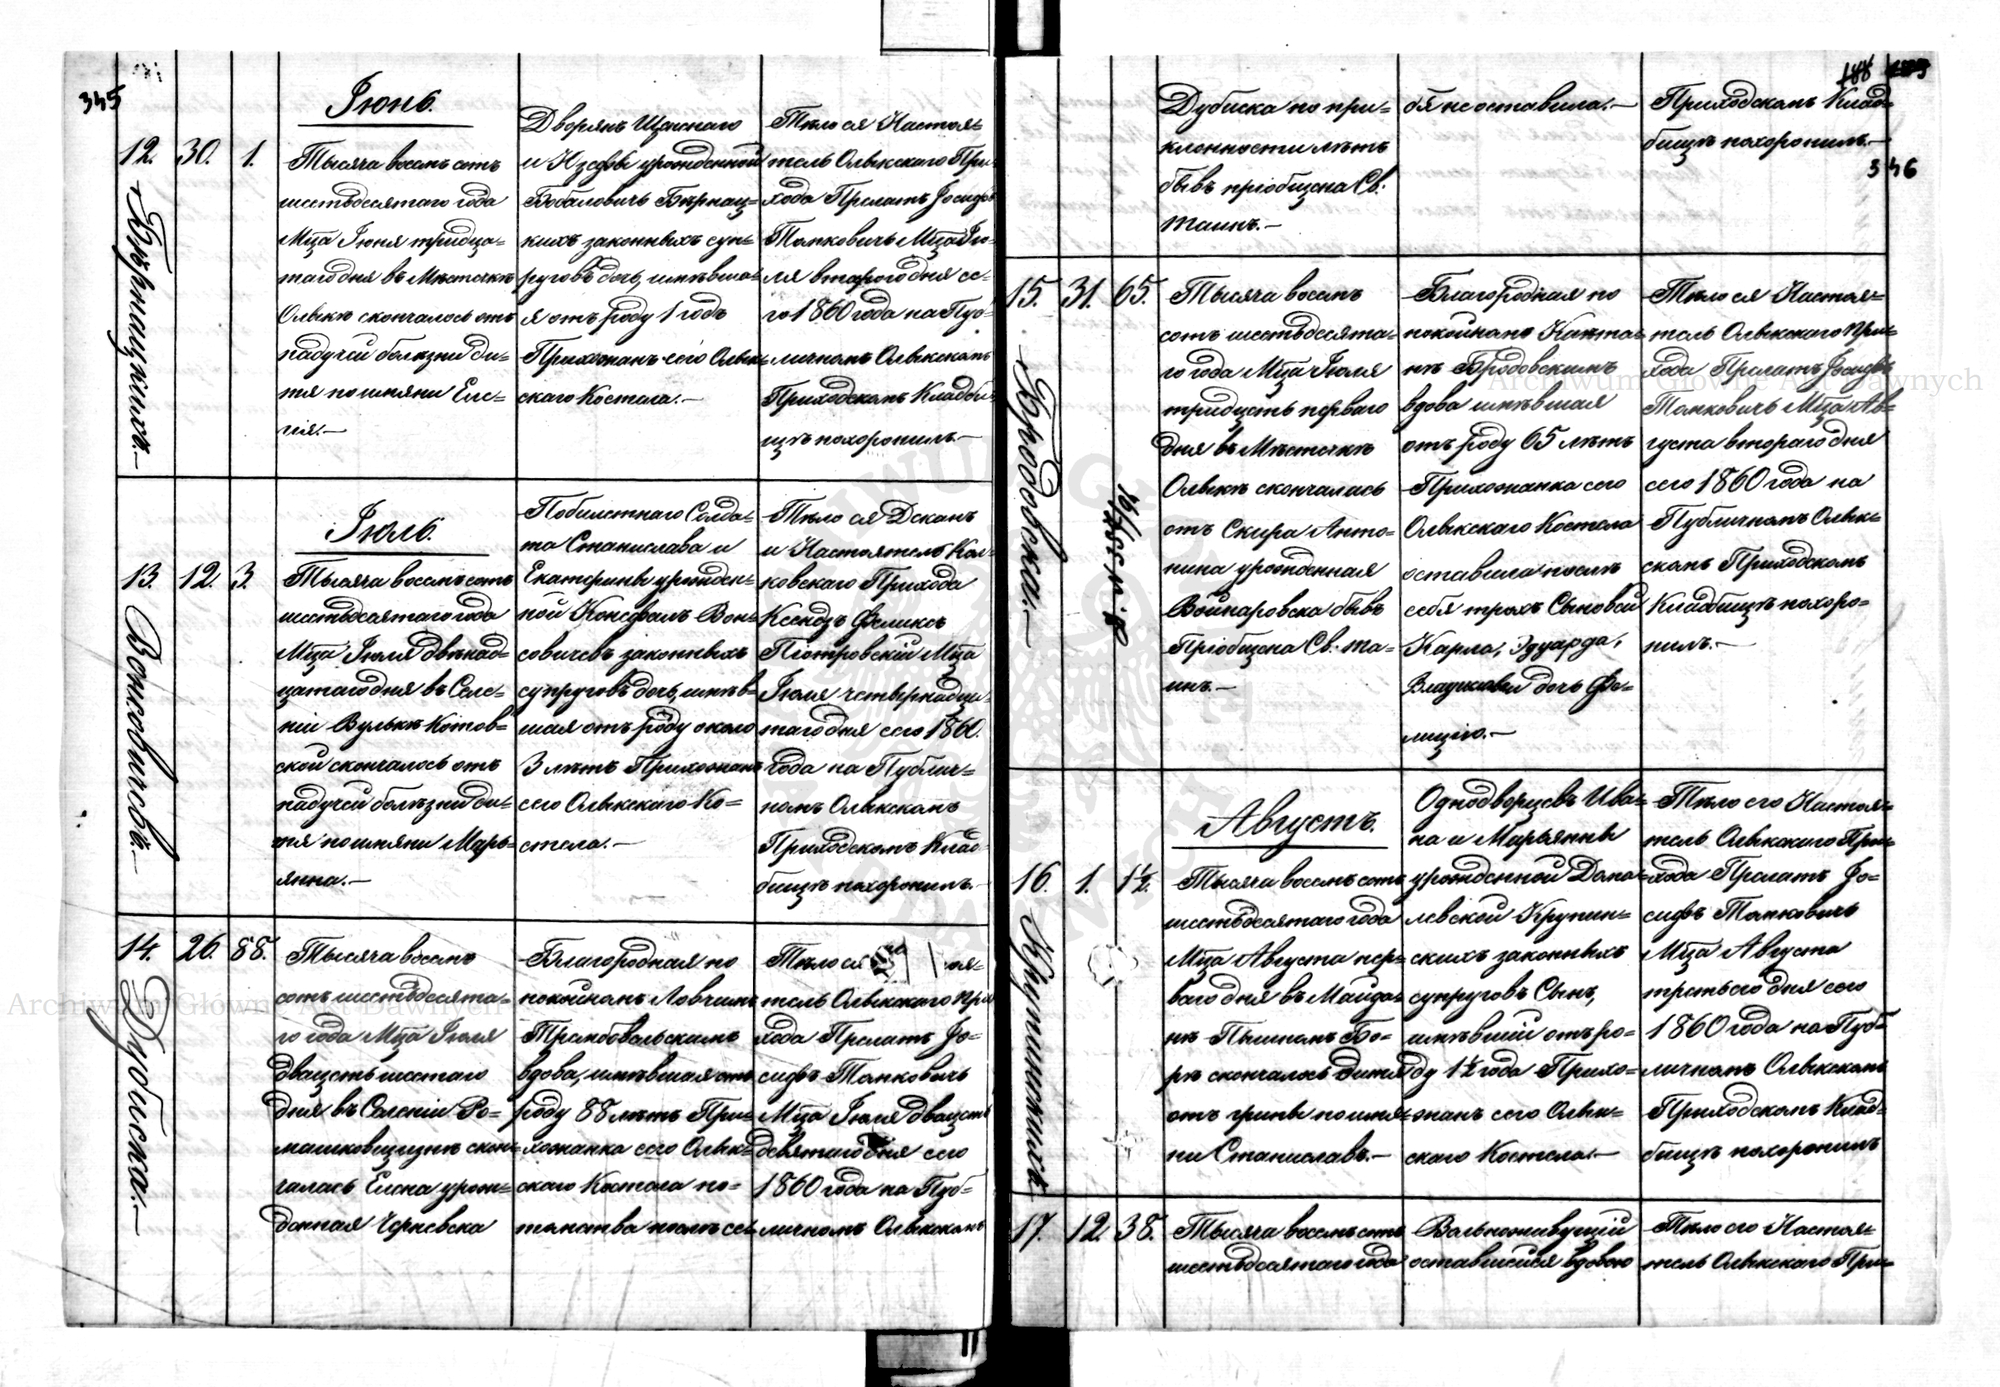 345
Іюнь.
12. 30. 1.
Бѣрнацкихъ.—
Тысяча восемьсотъ
шестьдесятаго года
Мца Іюня тридца-
таго дня въ Мѣстечкѣ
Олыкѣ скончалось отъ
падучей болѣзни ди-
тя по имяни Еле-
на.—
Дворянъ Щаснаго
и Юзефы урожденной
Бобаловичь Бѣрнац-
кихъ законныхъ суп-
руговъ дочь, имѣвша-
я отъ роду 1 годъ
Прихожанъ сего Олык-
скаго Костела.—
Тѣло ея Настоя-
тель Олыкскаго При-
хода Прелатъ Іосифъ
Томковичь Мца Ію-
ля втораго дня се-
го 1860 года на Пуб-
личномъ Олыкскомъ
Приходскомъ Кладби-
щѣ похоронилъ.—
Іюль.
13. 12. 3.
Вонсовичева.—
Тысяча восемьсотъ
шестьдесятаго года
Мца Іюля двѣнад-
цатаго дня въ Селе-
ніи Вулькѣ Котов-
ской скончалось отъ
падучей болѣзни ди-
тя по имяни Марь-
янна.—
Побилетнаго Солда-
та Станислава и
Екатерины урожден-
ной Вон-
совичевъ законныхъ
супруговъ дочь, имѣв-
шая отъ роду около
3 лѣтъ Прихожанъ
сего Олыкскаго Ко-
стела.—
Тѣло ея Деканъ
и Настоятель Кол-
ковскаго Прихода
Ксендзъ Феликсъ
Піотровскій Мца
Іюля четырнадца-
таго дня сего 1860.
года на Публич-
номъ Олыкскомъ
Приходскомъ Клад-
бищѣ похоронилъ.—
14. 26. 88.
Дубиска.—
Тысяча восемь
сотъ шестьдесята-
го года Мца Іюля
двацеть шестаго
дня въ Селеніи Ро-
машковщизнѣ скон-
чалась Елена урож-
донная Черневска
Благородная по
покойномъ Ловчимъ
Трембовельскимъ
вдова, имѣвшая отъ
роду 88 лѣтъ При-
хожанка сего Олык-
скаго Костела по-
томства послѣ се-
Тѣло ея
тель Олыкскаго При-
хода Прелатъ Іо-
сифъ Томковичь
Мца Іюля двацеть
девятаго дня сего
1860 года на Пуб-
личномъ Олыкскомъ
188
346
Дубиска по при-
клонности лѣтъ
бывъ пріобщена Св:
Таинъ.—
бя не оставила.—
Приходскомъ Клад-
бищѣ похоронилъ.—
15. 31. 65.
Бродовска.—
Тысяча восемь
сотъ шестьдесята-
го года Мца Іюля
тридцеть перваго
дня въ Мѣстечкѣ
Олыкѣ скончалась
отъ Скира Анто-
нина урожденная
Войнаровска бывъ
Пріобщена Св: та-
инъ.—
Благородная по
покойномъ Капита-
нѣ Бродовскимъ
вдова имѣвшая
отъ роду 65 лѣтъ
Прихожанка сего
Олыкскаго Костела
оставила послѣ
себя трохъ Сыновей
Карла, Эдуарда,
дочь Фе-
лицію.—
Тѣло ея Настоя-
тель Олыкскаго При-
хода Прелатъ Іосифъ
Томковичь Мца Ав-
густа втораго дня
сего 1860 года на
Публичномъ Олык-
скомъ Приходскомъ
Кладбищѣ похоро-
нилъ.—
Августъ.
16. 1. 1½.
Крупинскихъ
Тысяча восемьсотъ
шестьдесятаго года
Мца Августа пер-
ваго дня въ Майда-
нѣ Пышномъ Бо-
рѣ скончалось дитя
отъ грипы по имя-
ни Станиславъ.—
Однодворцевъ Ива-
на и Марьянны
урожденной Дома-
левской Крупин-
скихъ законныхъ
супруговъ Сынъ,
имѣвшій отъ ро-
ду 1½ года Прихо-
жанъ сего Олык-
скаго Костела.—
Тѣло его Настоя-
тель Олыкскаго При-
хода Прелатъ Іо-
сифъ Томковичь
Мца Августа
третьего дня сего
1860 года на Пуб-
личномъ Олыкскомъ
Приходскомъ Клад-
бищѣ похоронилъ
17. 12 38.
Тысяча восемьсотъ
шестьдесятаго года
Вольноживущій
оставшейся вдовою
Тѣло его Настоя-
тель Олыкскаго При-
Archiwum Główne Akt Dawnych
Archiwum Główne Akt Dawnych